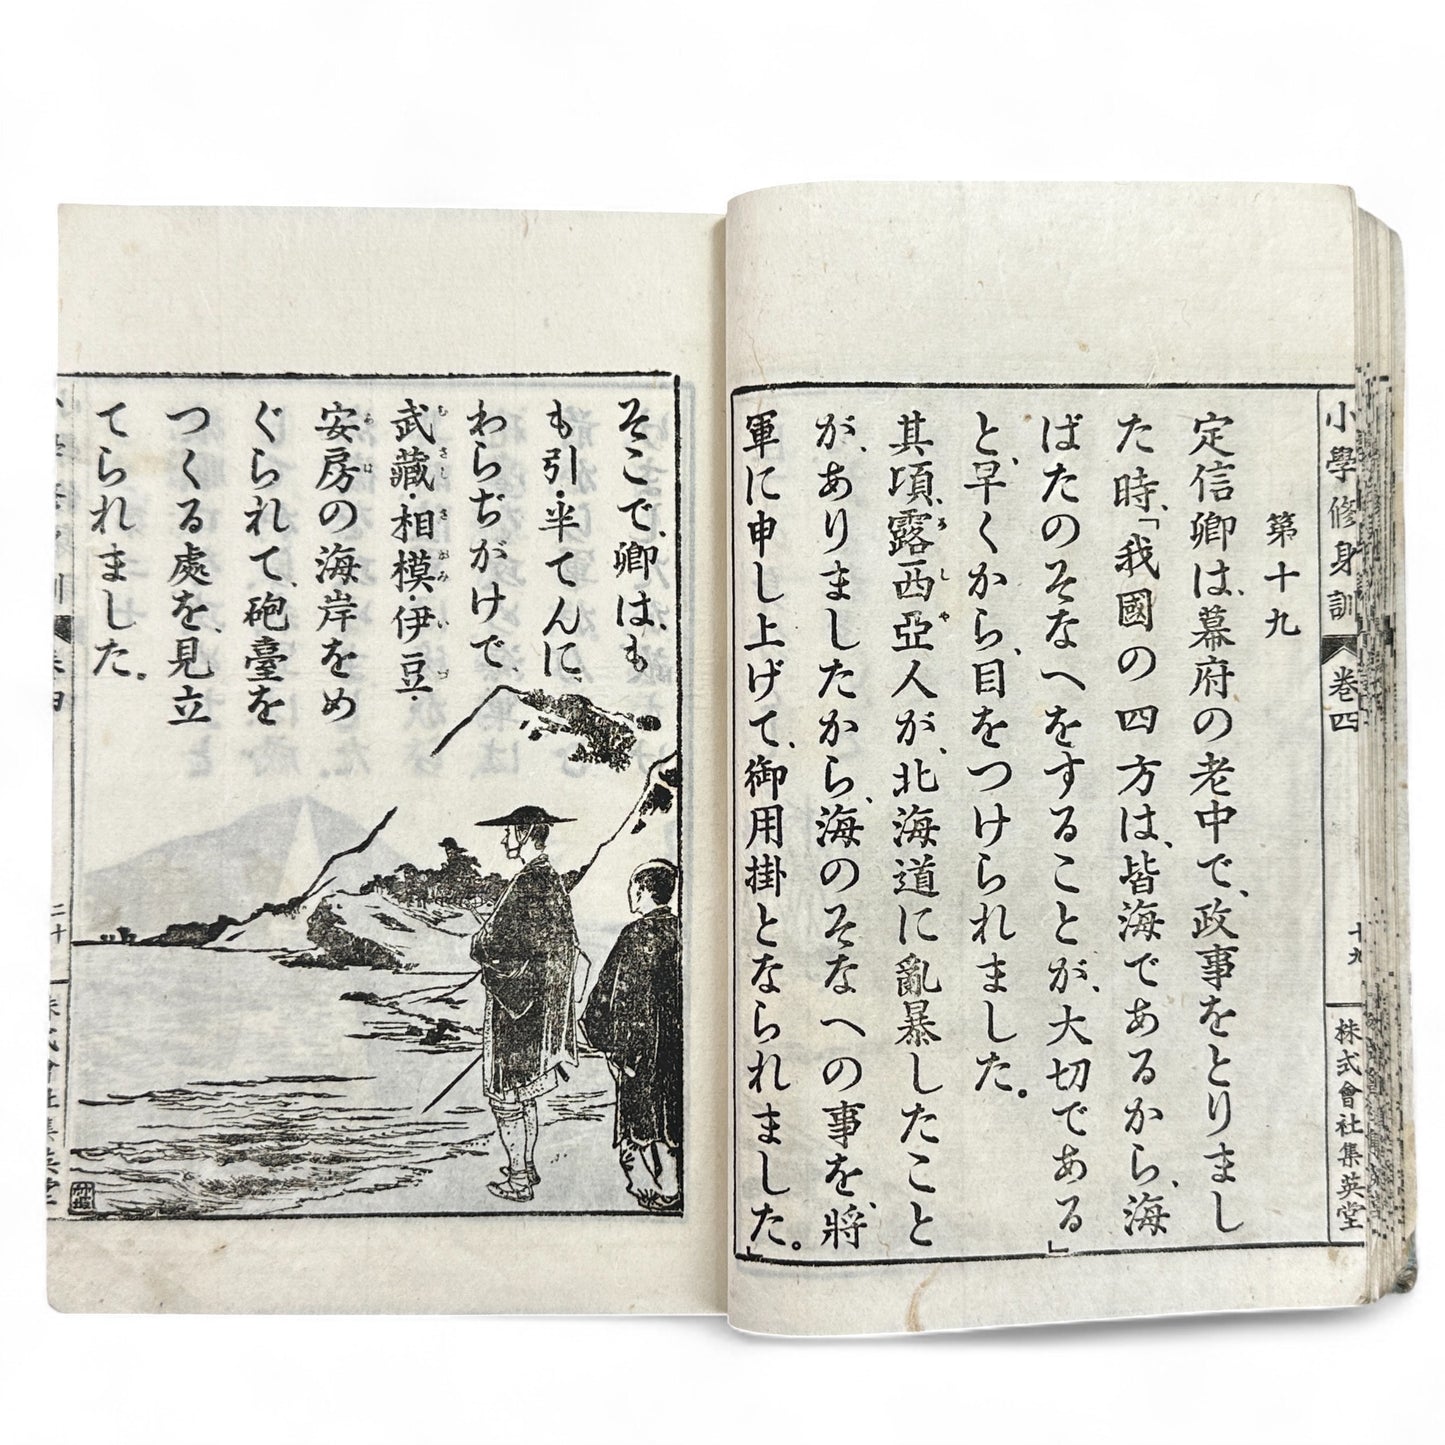 小學修身訓
卷四
十九
株式會社集英堂
第十九
定信卿は、幕府の老中で、政事をとりまし
た時、「我國の四方は、皆海であるから、海
ばたのそなへをすることが、大切である」
と、早くから、目をつけられました。
其頃、露西亞人が、北海道に亂暴したこと
が、ありましたから、海のそなへの事を、將
軍に申し上げて、御用掛となられました。」
そこで、卿は、も
も引・半てんに、
わらぢがけで、
武藏・相模・伊豆・
安房の海岸をめ
ぐられて、砲臺を
つくる處を、見立
てられました。